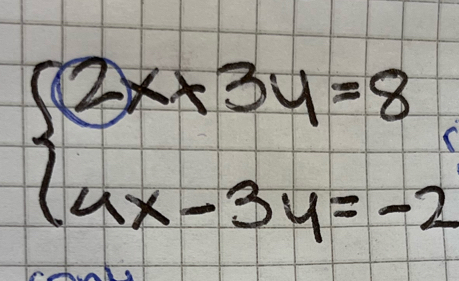 2x+3y=8
4x-3y=-2